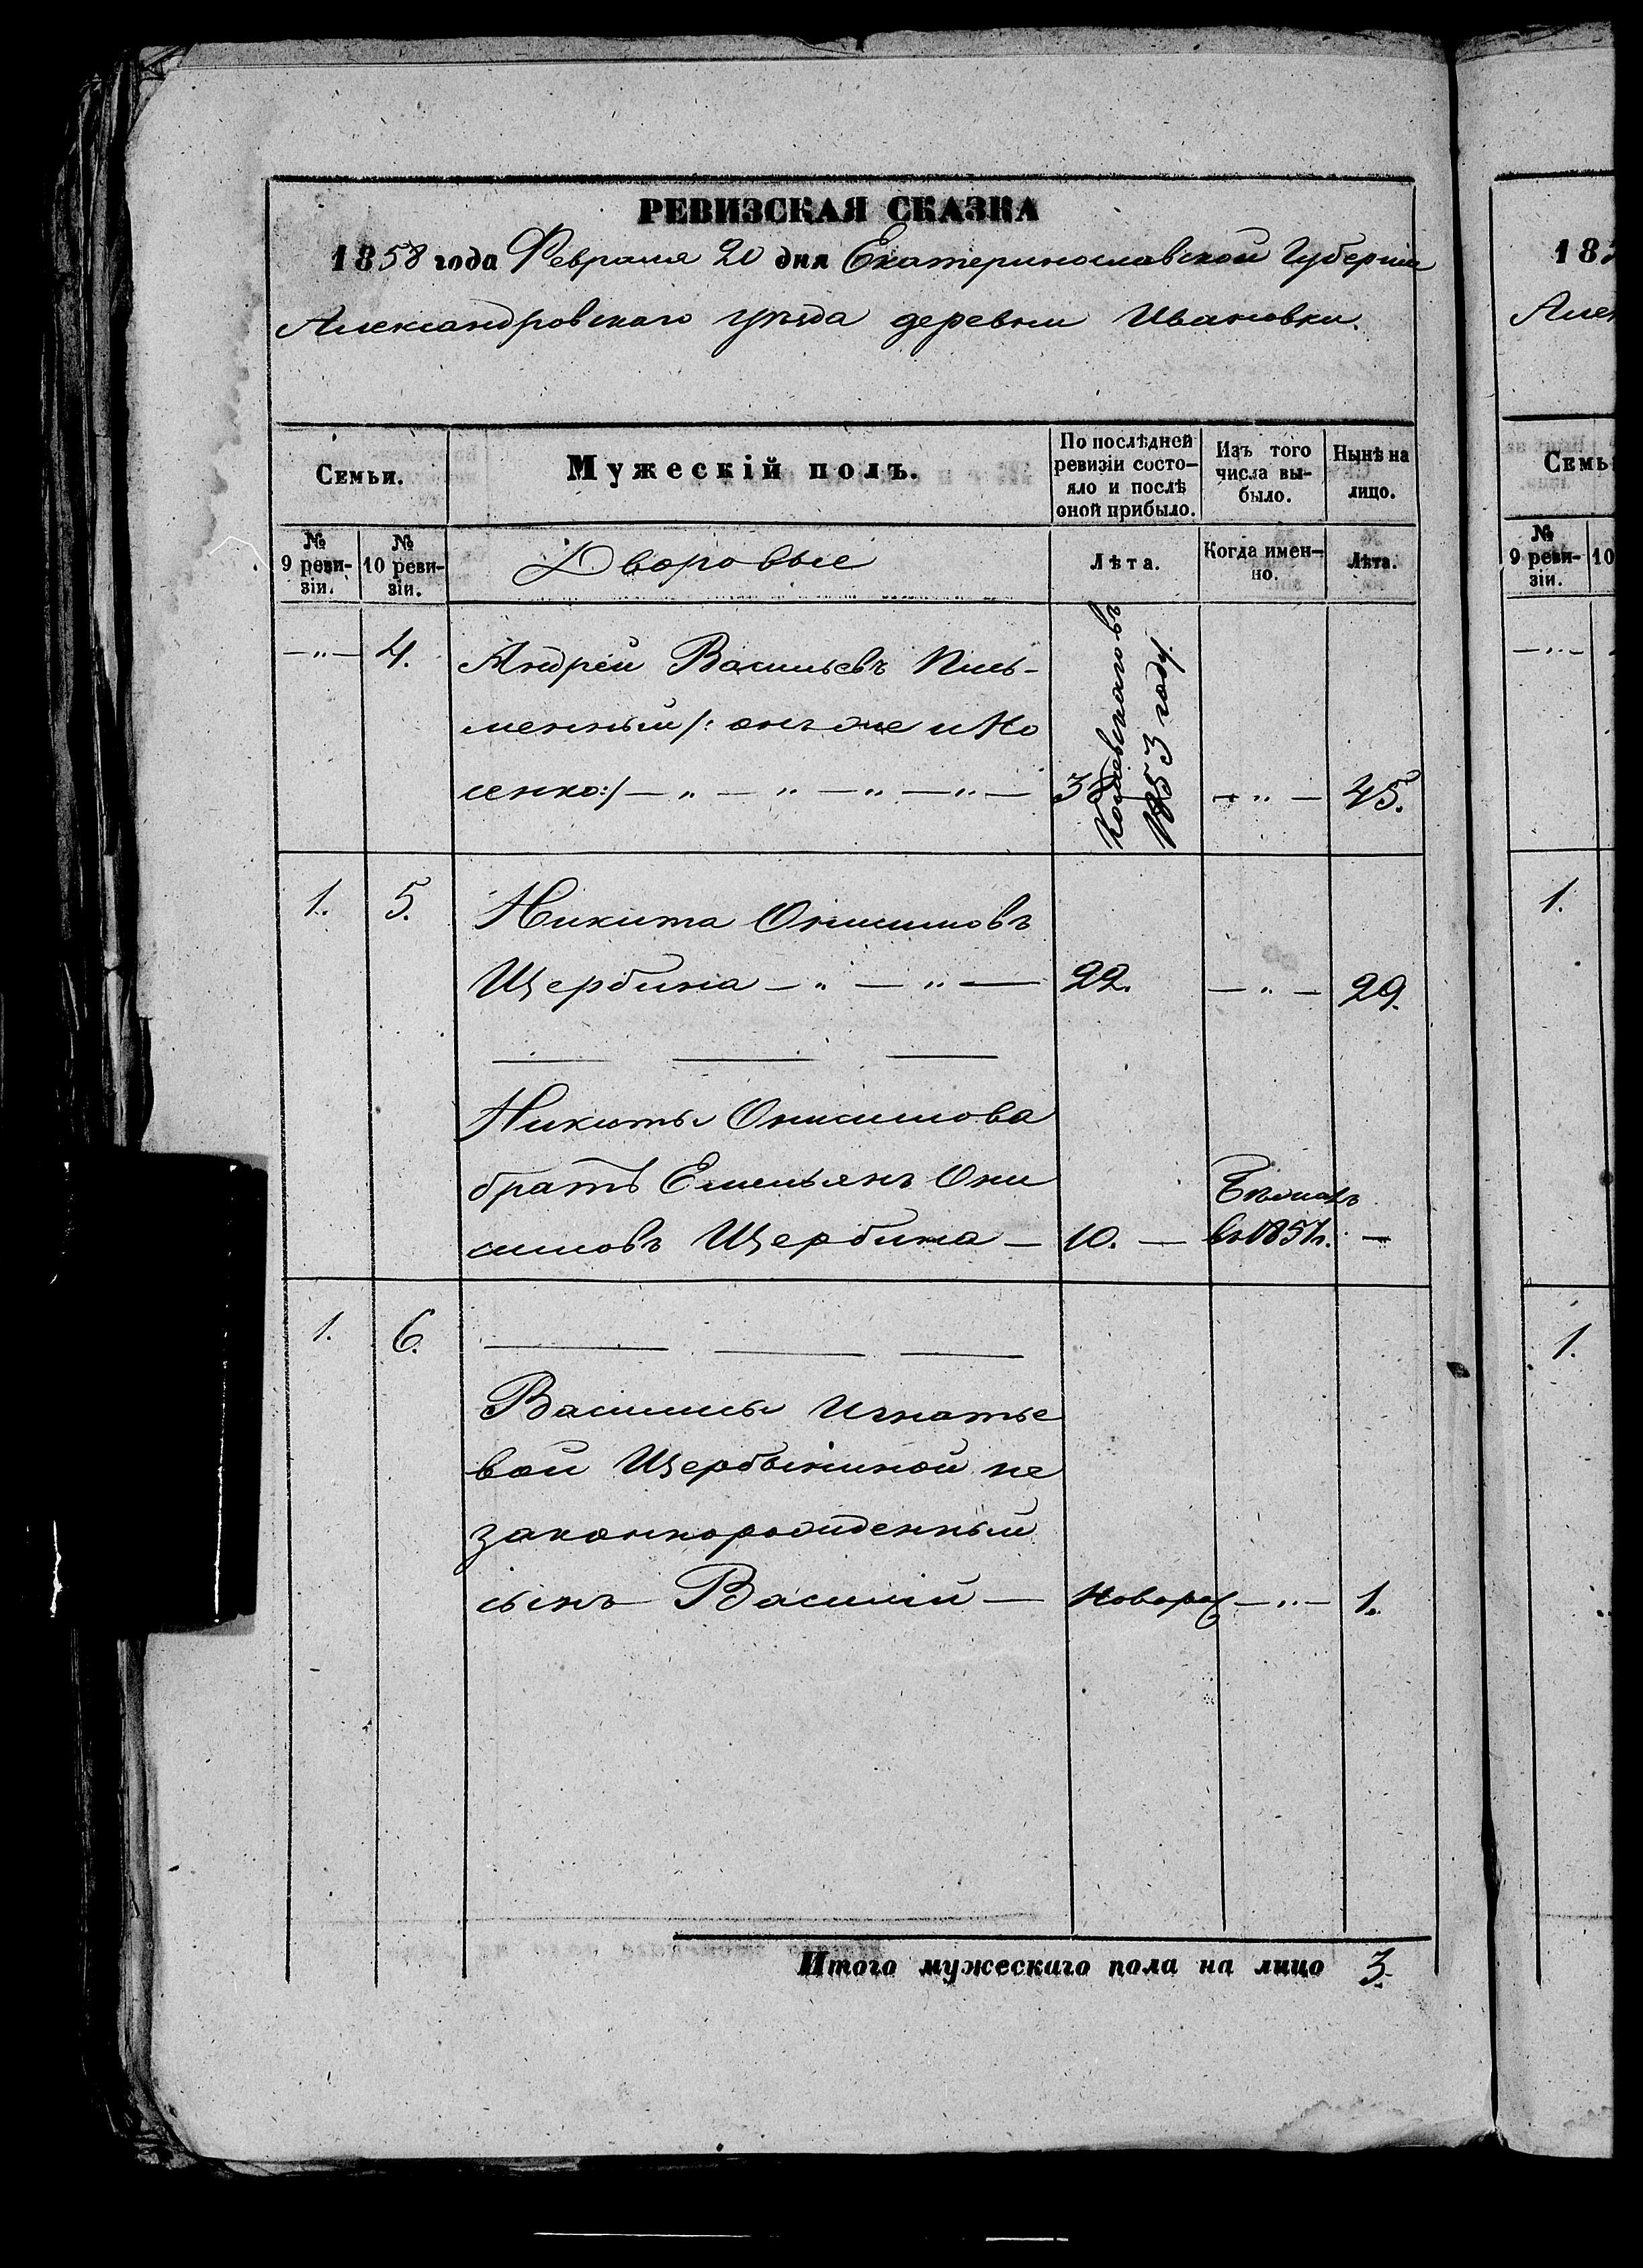 РЕВИЗСКАЯ СКАЗКА
1858 года Февраля 20 дня Екатеринославской Губернии
Александровского уѣзда деревни Ивановки.
Семьи.
Мужескій полъ.
По послѣдней ревизіи состо-
яло и послѣ
оной прибыло.
Изъ того
числа вы-
было.
Нынѣ на
лицо.
№
9 реви-
зіи.
№
10 реви-
зіи.
Дворовые
Лѣта.
Когда имен-
но.
Лѣта.
— " — 4. Андрей Васильевъ Пись-
менный /: онъ же и Но
сенко :/ — " — " — " — " — — " — 45.
въ
1853 году.
1. 5. Никита Онисимовъ
Щербина — " — " — 22. — " — 29.
Никиты Онисимова
братъ Емельянъ Они
симовъ Щербина — 10. — въ 1857г. —
1. 6.
Василисы Игнатье
вой Щербининой не
законнорожденный
сынъ Василій — Новорож — " — 1.
Итого мужескаго пола на лицо 3.
183
Алек
Семь
№
9 реви-
зіи.
10
— " —
1.
1.